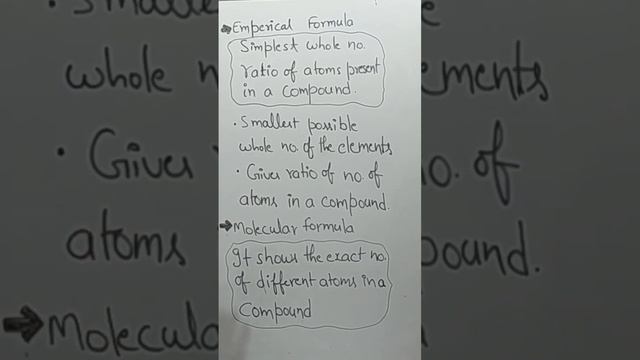 ➡Emperical Formula
Simplest whole no.
ratio of atoms present
in a compound.
• Smallest possible
whole no. of the elements
• Gives ratio of no. of
atoms in a compound.
➡Molecular formula
It shows the exact no.
of different atoms in a
Compound